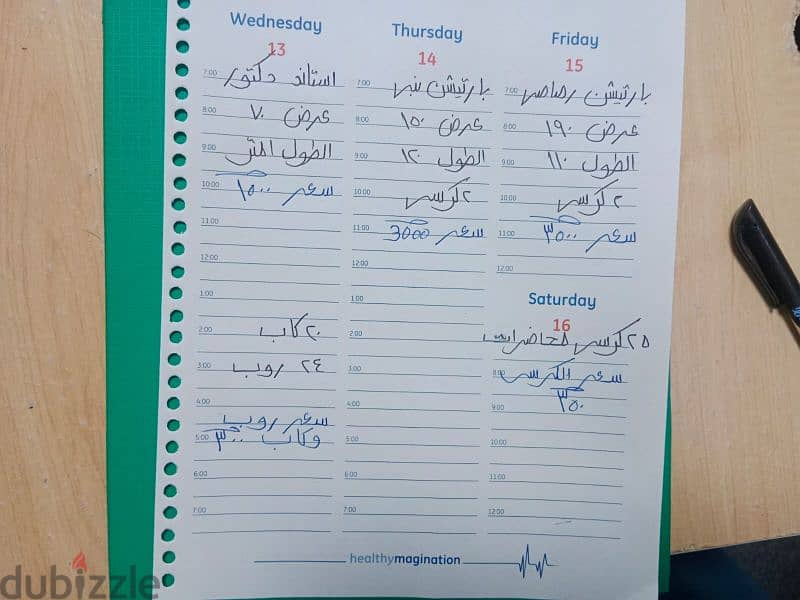 Wednesday
13
7:00 استاند دكتور
8:00 عرض ٧٠
9:00 الطول المتر
10:00 سعر ١٥٠٠
11:00
12:00
1:00
2:00 ٢٠ كاب
3:00 ٢٤ روب
4:00 سعر روب
5:00 وكاب ٣٠٠
6:00
7:00
Thursday
14
7:00 بارتيشن بنى
8:00 عرض ١٥٠
9:00 الطول ١٢٠
10:00 ٢ كرسى
11:00 سعر 3000
12:00
1:00
2:00
3:00
4:00
5:00
6:00
7:00
Friday
15
7:00 بارتيشن رصاصى
8:00 عرض ١٩٠
9:00 الطول ١١٠
10:00 ٢ كرسى
11:00 سعر ٣٥٠٠
12:00
Saturday
16
٢٥ كرسى محاضرات
8:00 سعر الكرسى
9:00 ٣٥٠
10:00
11:00
12:00
healthymagination
dubizzle